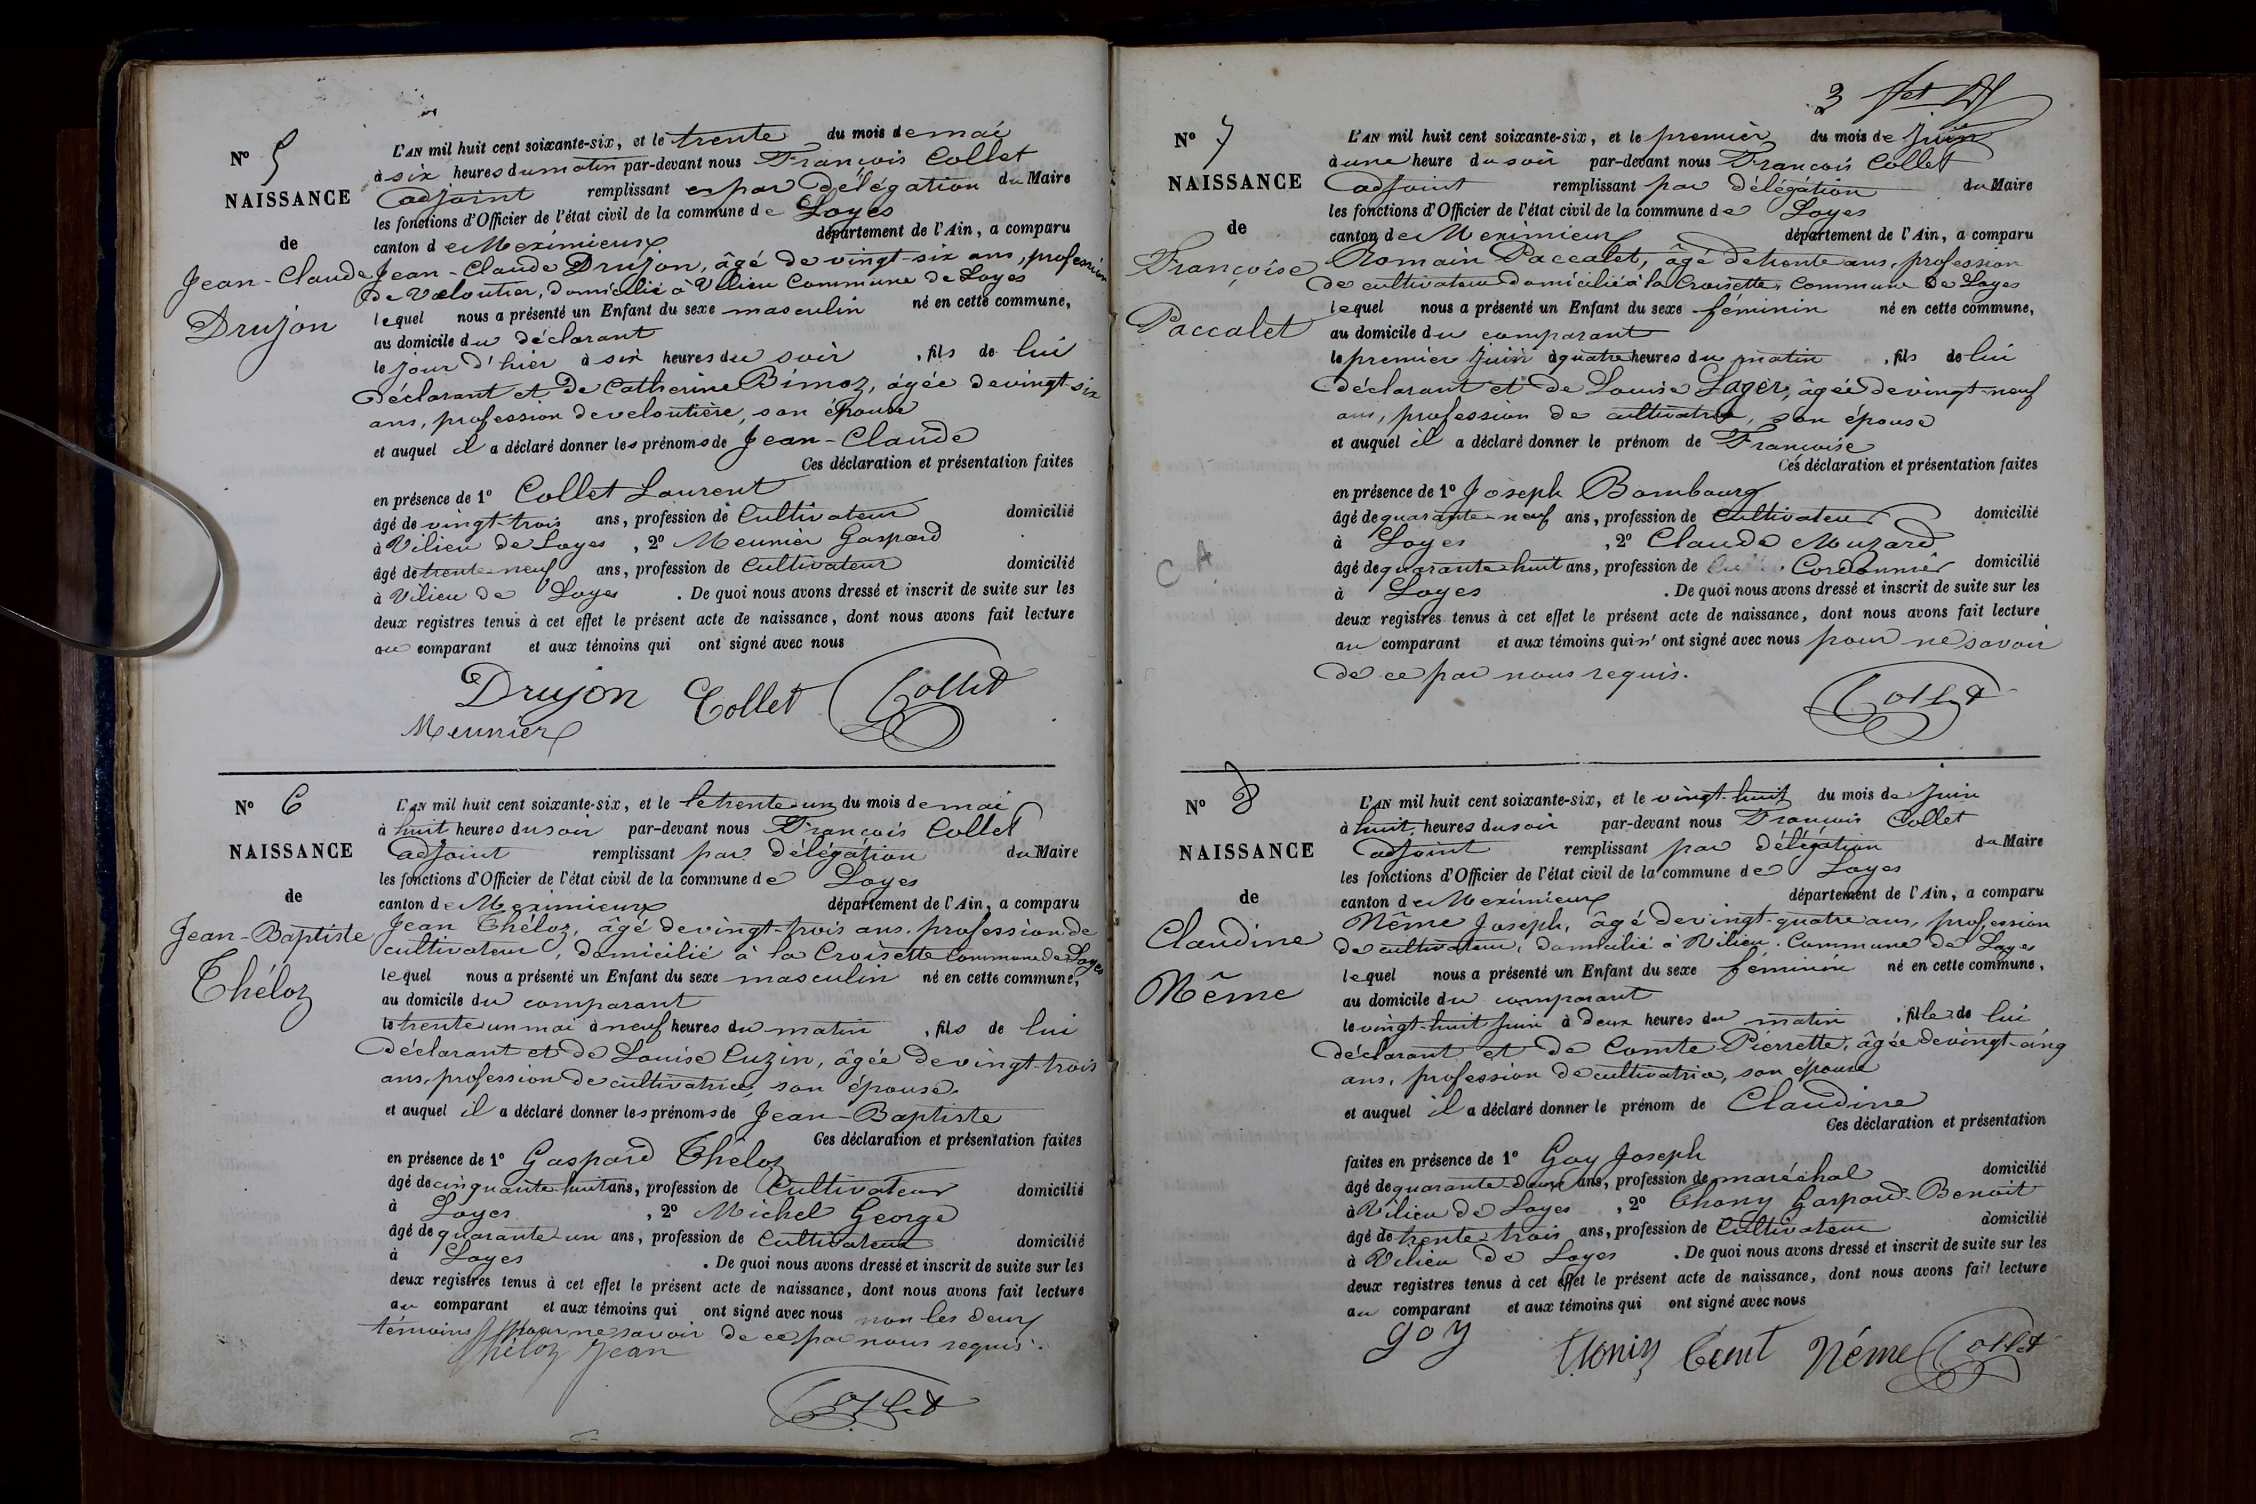 N° 5
NAISSANCE
de
Jean-Claude
Drujon
L'AN mil huit cent soixante-six, et le trente du mois de mai
à six heures du matin par-devant nous François Collet
adjoint remplissant par délégation du Maire
les fonctions d'Officier de l'état civil de la commune de Loyes
canton de Meximieux département de l'Ain, a comparu
Jean-Claude Drujon, âgé de vingt-six ans, profession
de Veloutier, domicilié à Vilieu Commune de Loyes
lequel nous a présenté un Enfant du sexe masculin né en cette commune,
au domicile du déclarant
le jour d'hier à six heures du soir, fils de lui
déclarant et de Catherine Bimoz, âgée de vingt-six
ans, profession de veloutière, son épouse
et auquel il a déclaré donner les prénoms de Jean-Claude
Ces déclaration et présentation faites
en présence de 1° Collet Laurent
âgé de vingt-trois ans, profession de Cultivateur domicilié
à Vilieu de Loyes, 2° Meunier Gaspard
âgé de trente-neuf ans, profession de Cultivateur domicilié
à Vilieu de Loyes. De quoi nous avons dressé et inscrit de suite sur les
deux registres tenus à cet effet le présent acte de naissance, dont nous avons fait lecture
au comparant et aux témoins qui ont signé avec nous
Drujon Collet Collet
Meunier
N° 6
NAISSANCE
de
Jean-Baptiste
Théloz
L'AN mil huit cent soixante-six, et le le trente-un du mois de mai
à huit heures du soir par-devant nous François Collet
adjoint remplissant par délégation du Maire
les fonctions d'Officier de l'état civil de la commune de Loyes
canton de Meximieux département de l'Ain, a comparu
Jean Théloz, âgé de vingt-trois ans, profession de
cultivateur, domicilié à la Croisette Commune de Loyes
lequel nous a présenté un Enfant du sexe masculin né en cette commune,
au domicile du comparant
le trente un mai à neuf heures du matin, fils de lui
déclarant et de Louise Cuzin, âgée de vingt-trois
ans, profession de cultivatrice, son épouse.
et auquel il a déclaré donner les prénoms de Jean-Baptiste
Ces déclaration et présentation faites
en présence de 1° Gaspard Théloz
âgé de cinquante-huit ans, profession de Cultivateur domicilié
à Loyes, 2° Michel George
âgé de quarante-un ans, profession de Cultivateur domicilié
à Loyes. De quoi nous avons dressé et inscrit de suite sur les
deux registres tenus à cet effet le présent acte de naissance, dont nous avons fait lecture
au comparant et aux témoins qui ont signé avec nous non les deux
témoins pour ne savoir de ce par nous requis.
Théloz Jean
Collet
3
N° 7
NAISSANCE
de
Françoise
Paccalet
L'AN mil huit cent soixante-six, et le premier du mois de Juin
à une heure du soir par-devant nous François Collet
adjoint remplissant par délégation du Maire
les fonctions d'Officier de l'état civil de la commune de Loyes
canton de Meximieux département de l'Ain, a comparu
Romain Paccalet, âgé de trente ans, profession
de cultivateur domicilié à la Croisette, Commune de Loyes
lequel nous a présenté un Enfant du sexe féminin né en cette commune,
au domicile du comparant
le premier Juin à quatre heures du matin, fils de lui
déclarant et de Louise Lager, âgée de vingt-neuf
ans, profession de cultivatrice, son épouse
et auquel il a déclaré donner le prénom de Françoise
Ces déclaration et présentation faites
en présence de 1° Joseph Bambourg
âgé de quarante-neuf ans, profession de Cultivateur domicilié
à Loyes, 2° Claude Muzard
âgé de quarante-huit ans, profession de Cordonnier domicilié
à Loyes. De quoi nous avons dressé et inscrit de suite sur les
deux registres tenus à cet effet le présent acte de naissance, dont nous avons fait lecture
au comparant et aux témoins qui n'ont signé avec nous pour ne savoir
de ce par nous requis.
C A
Collet
N° 8
NAISSANCE
de
Claudine
Même
L'AN mil huit cent soixante-six, et le vingt-huit du mois de Juin
à huit heures du soir par-devant nous François Collet
adjoint remplissant par délégation du Maire
les fonctions d'Officier de l'état civil de la commune de Loyes
canton de Meximieux département de l'Ain, a comparu
Même Joseph, âgé de vingt-quatre ans, profession
de cultivateur, domicilié à Vilieu. Commune de Loyes
lequel nous a présenté un Enfant du sexe féminin né en cette commune,
au domicile du comparant
le vingt-huit Juin à deux heures du matin, fille de lui
déclarant et de Comte Pierrette, âgée de vingt-cinq
ans, profession de cultivatrice, son épouse
et auquel il a déclaré donner le prénom de Claudine
Ces déclaration et présentation
faites en présence de 1° Goy Joseph
âgé de quarante-deux ans, profession de maréchal domicilié
à Vilieu de Loyes, 2° Thony Gaspard-Benoit
âgé de trente trois ans, profession de Cultivateur domicilié
à Vilieu de Loyes. De quoi nous avons dressé et inscrit de suite sur les
deux registres tenus à cet effet le présent acte de naissance, dont nous avons fait lecture
au comparant et aux témoins qui ont signé avec nous
goy Néme Collet